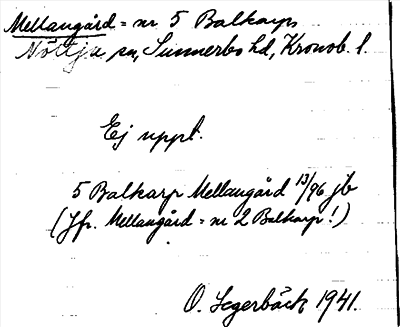 Mellangård = nr 5 Balkarp
Nöttja sn, Sunnerbo hd, Kronob. l.
Ej uppt.
5 Balkarp Mellangård 13/96 jb
(Jfr. Mellangård = nr 2 Balkarp!)
O. Segerbäck 1941.